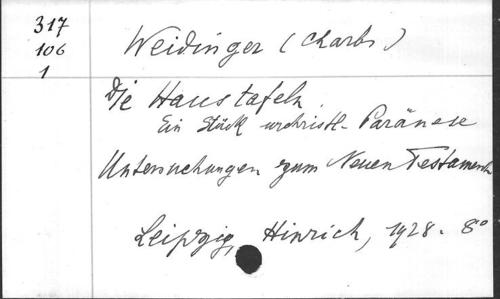 317
106
1
Weidinger (Charbs)
Die Haustafeln
Ein Stück urchristl. Paränese
Untersuchungen zum Neuen Testament
Leipzig, Hinrich, 1928. 8°